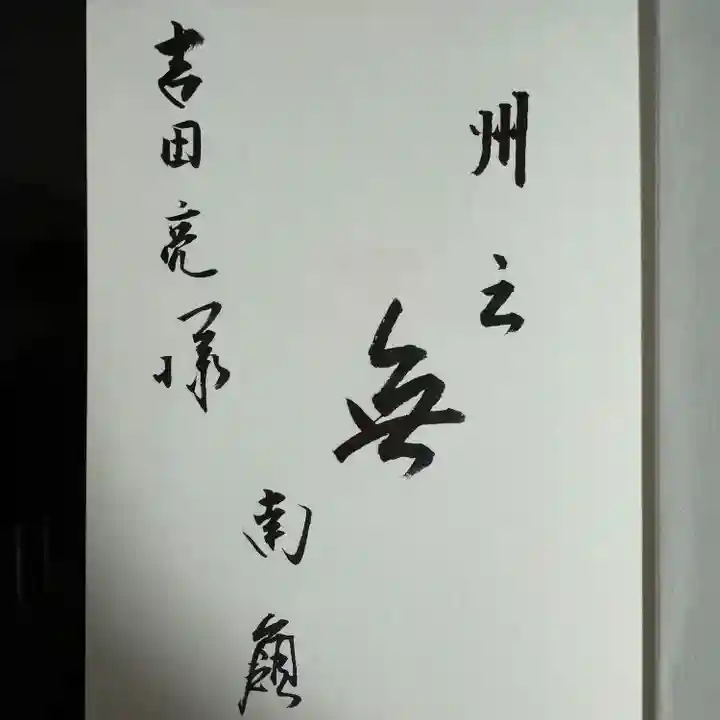 州云
無
南嶺
吉田亮様